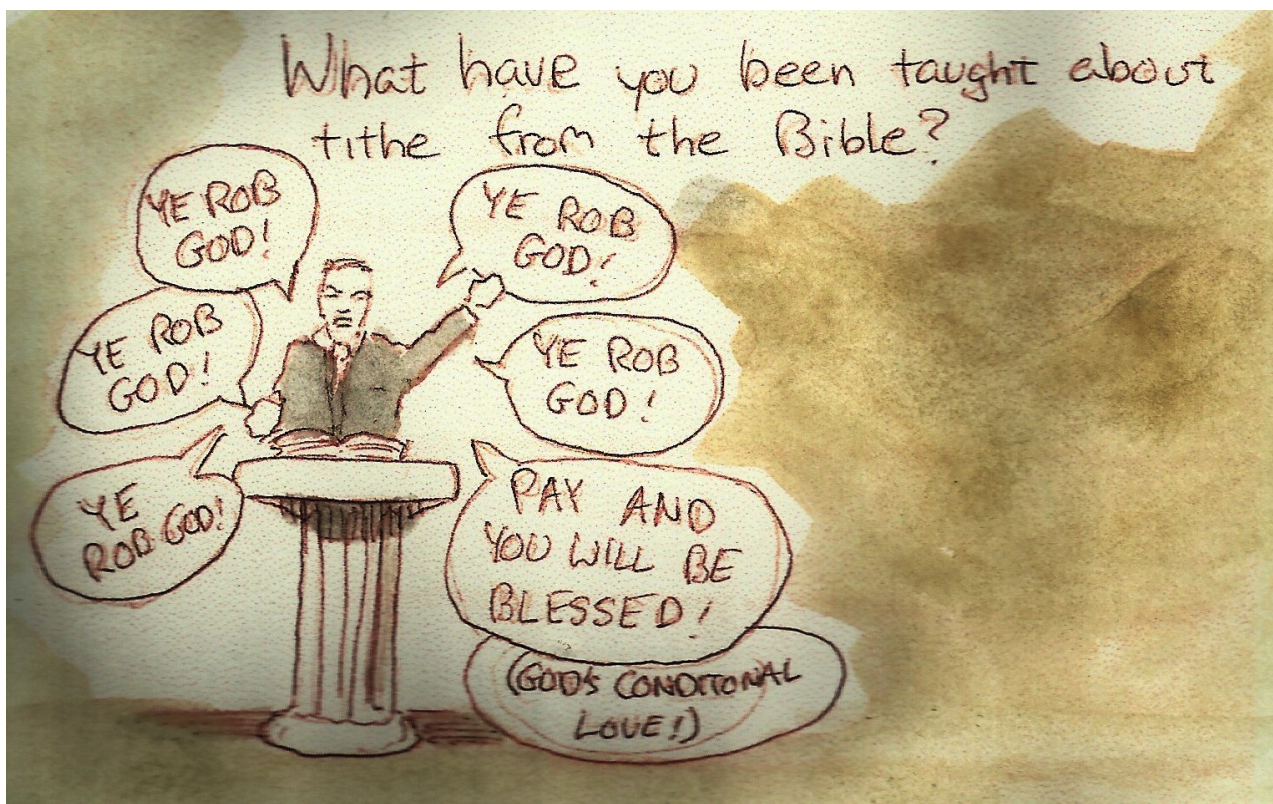 What have you been taught about
tithe from the Bible?
YE ROB
GOD!
YE ROB
GOD!
YE ROB
GOD!
YE ROB
GOD!
YE
ROB GOD!
PAY AND
YOU WILL BE
BLESSED!
(GOD'S CONDITONAL
LOVE!)